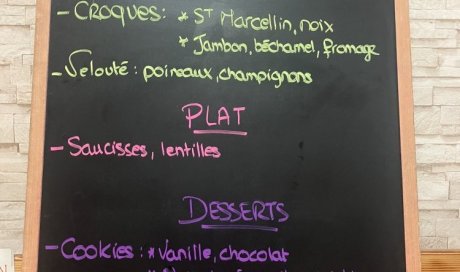 - CROQUES: * ST Marcellin, noix
* Jambon, béchamel, fromage
- Velouté : poireaux, champignons
PLAT
- Saucisses, lentilles
DESSERTS
- Cookies : * Vanille, chocolat